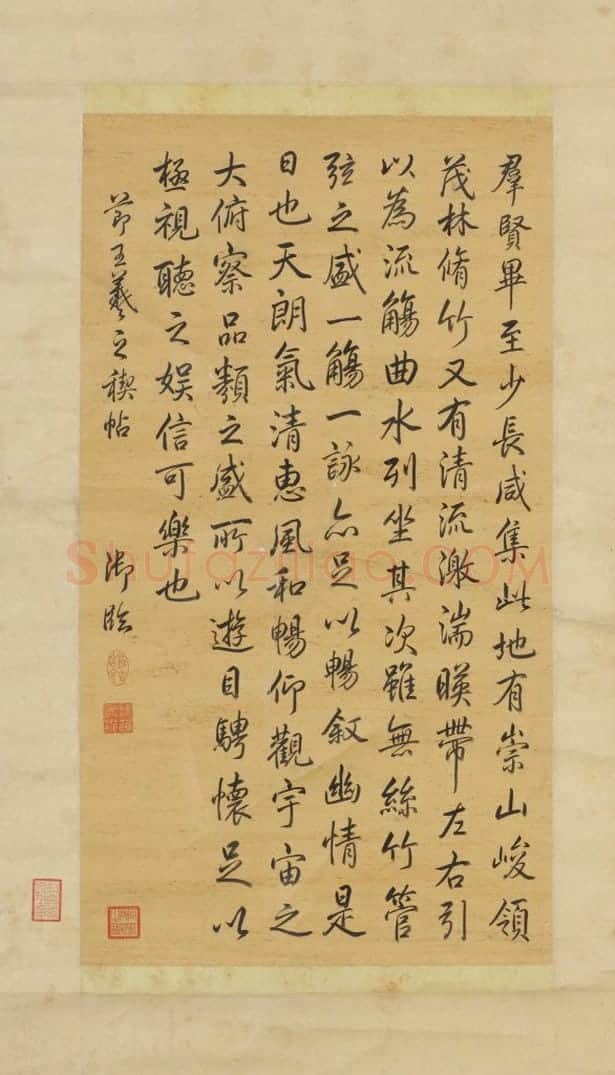 羣賢畢至少長咸集此地有崇山峻領
茂林脩竹又有清流激湍暎帶左右引
以為流觴曲水列坐其次雖無絲竹管
弦之盛一觴一詠亦足以暢叙幽情是
日也天朗氣清惠風和暢仰觀宇宙之
大俯察品類之盛所以遊目騁懷足以
極視聽之娱信可樂也
節王羲之禊帖
御臨
Shufaziliao.COM